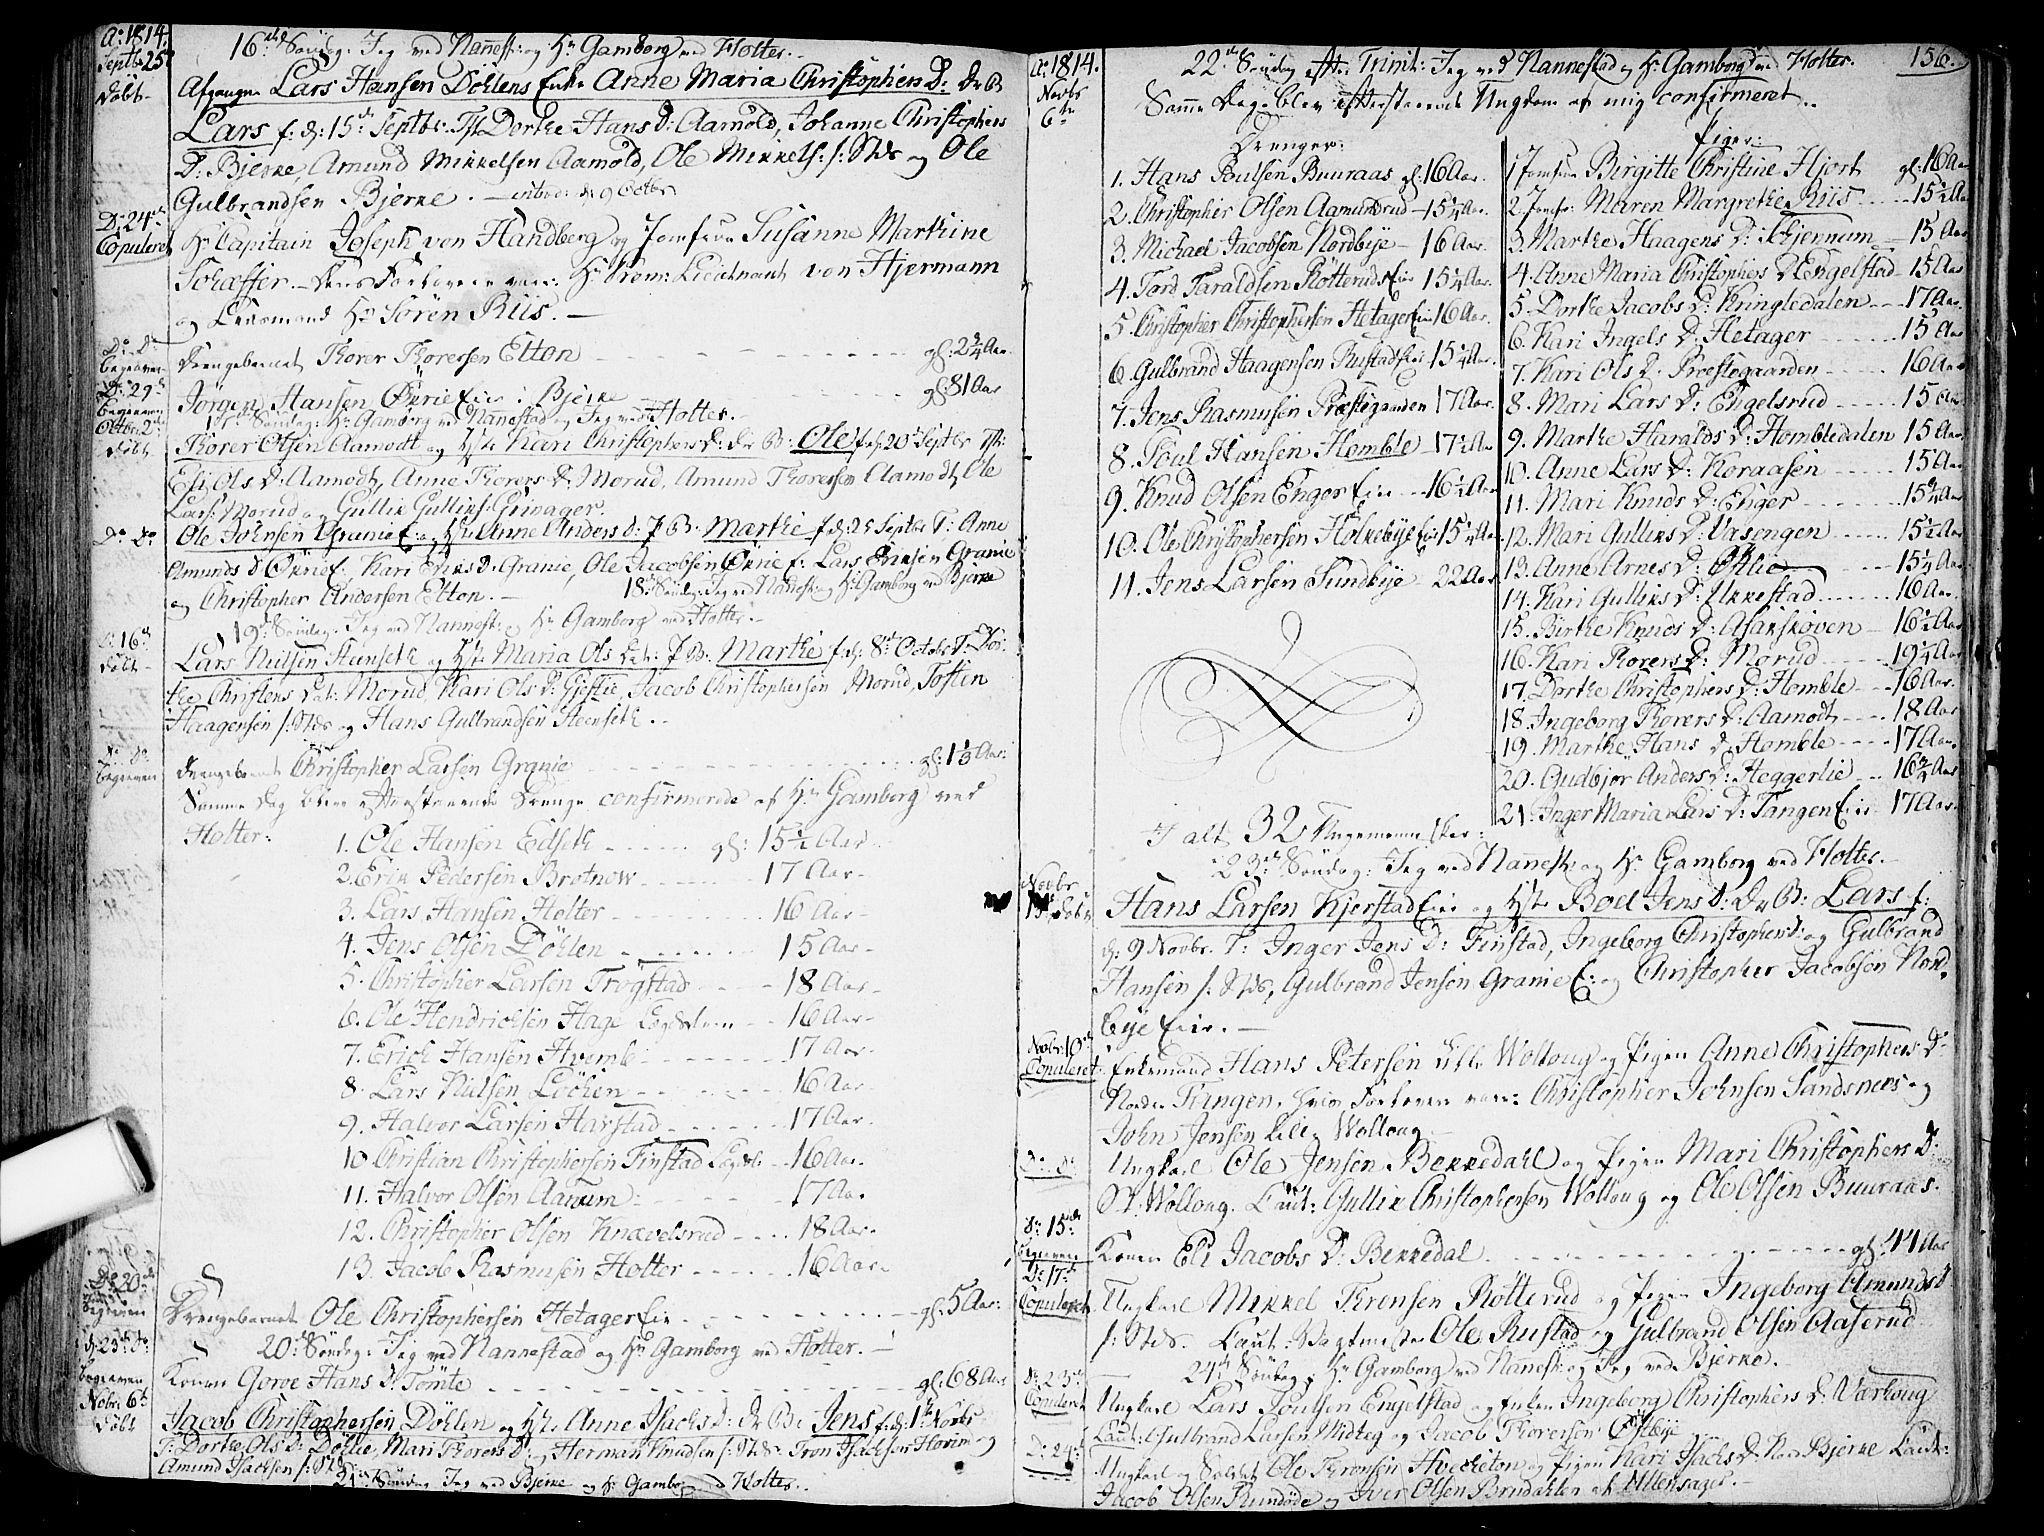 Ao: 1814.
Septb: 25de
Döbt
16de Söndag: Jeg ved Nannest: og Hr Gamborg ved Holter.
Afgangne Lars Hansen Döhlens Enke Anne Maria Christophers D: Dr B:
Lars f: d: 15de Septbr. T: Dorthe Hans D: Aamold, Johanne Christophers
D: Bjerke, Amund Mikkelsen Aamold, Ole Mikkels: s: Stds og Ole
Gulbrandsen Bjerke. — introd: d: 9 Octbr
D: 24de
Copuleret
Hr Capitain Joseph von Handberg og Jomfrue Susanne Marthine
Schæffer. — Deres Forlovere vare: Hr Prem: Lieutnant von Hjermann
og Lensmand Hr Sören Riis. —
Do Do
begraven
Drengebarnet Thorer Thorersen Elton gl: 2 3/4 Aar.
D: 29de
begraven
Jörgen Hansen Ökrie Eier i Bjerke gl: 81 Aar
Octbr: 2de
Döbt
17de Söndag: Hr Gamborg ved Nannestad og Jeg ved Holter. —
Thorer Olsen Aamodt og Hst: Kari Christophers D: Dr B: Ole f: d: 20de Septbr T:
Eli Ols D: Aamodt, Anne Thorers D: Morud, Amund Thorersen Aamodt, Ole
Lars: Morud og Gullik Gulliks: Grinager.
Do Do
Ole Johnsen Granie E: og Hst: Anne Anders D: P B: Marthe f: d: 25 Septbr T: Anne
Amunds D Ökrie E:, Kari Eriks D: Granie, Ole Jacobsen Ökrie E: Lars Eriksen Granie
og Christopher Andersen Elton. — 18de Söndag: Jeg ved Nannest: og Hr Gamborg ved Bjerke
19de Söndag: Jeg ved Nannest: og Hr Gamborg ved Holter. —
D: 16de
Döbt
Lars Nielsen Steenseth og Hst: Maria Ols Dat: P B: Marthe f: d: 8de Octbr T: Dor-
the Christens Dat: Morud, Kari Ols D: Gjestie, Jacob Christophersen Morud, Tosten
Haagensen s: Stds og Hans Gulbrandsen Steenseth. —
Do Do
begraven
Drengebarnet Christopher Larsen Granie gl: 1 1/3 Aar:
Samme Dag bleve efterstaaende Drenge confirmerede af Hr Gamborg ved
Holter:
1. Ole Hansen Eidseth gl: 15 1/2 Aar
2. Erik Pedersen Brotnow 17 Aar
3. Lars Hansen Holter 16 Aar
4. Jens Olsen Döhlen 15 Aar
5. Christopher Larsen Trogstad 18 Aar
6. Ole Hendrichsen Hage Lægdslem 16 Aar
7. Erich Hansen Hvemb 17 Aar
8. Lars Nielsen Löchen 16 Aar
9. Halvor Larsen Harstad 17 Aar
10. Christian Christophersen Finstad Lægdsl: 16 Aar
11. Halvor Olsen Aanum 17 Aar
12. Christopher Olsen Knævelsrud 18 Aar
13. Jacob Rasmusen Holter 16 Aar
D: 20de
begraven
Drengebarnet Ole Christophersen Hetager Eie gl: 5 Aar:
20de Söndag: Jeg ved Nannestad og Hr Gamborg ved Holter. —
d: 23de
begraven
Konen Goroe Hans D: Tömte gl: 68 Aar
Nobr: 6te
Döbt
Jacob Christophersen Döhlen og Hst: Anne Isachs D: Dr B: Jens f: d: 1ste Novbr
T: Dorthe Ols D: Döhlie, Mari Thorers D: og Herman Knudsen s: Stds Tron Isachsen Horien og
Amund Isachsen s: Std
21de Söndag Jeg ved Bjerke og Hr Gamborg ved Holter.
Ao: 1814.
Novbr
6te
156.
22de Söndag efter Trinit: Jeg ved Nannestad og Hr Gamborg ved Holter.
Samme Dag blev efterstaaende Ungdom af mig confirmeret.
Drenger:
1. Hans Poulsen Buuraas gl: 16 Aar.
2. Christopher Olsen Aamundrud 15 1/4 Aar.
3. Michael Jacobsen Nordbye 16 Aar.
4. Tord Taraldsen Rötterud Eie 15 1/4 Aar.
5. Christopher Christophersen Hetager Eie 16 Aar.
6. Gulbrand Haagensen Rustad Eie 15 1/4 Aar
7. Jens Rasmusen Præstegaarden 17 Aar.
8. Poul Hansen Homble 17 1/2 Aar
9. Knud Olsen Enger Eie 16 1/2 Aar
10. Ole Christophersen Holkebye Eie 15 1/4 Aar
11. Jens Larsen Sundbye 22 Aar
Piger:
1 Jomfrue Birgitte Christine Hjort gl: 16 Aar
2. Jomfr: Maren Margrethe Riis 15 1/2 Aar
3. Marthe Haagens D: Schjernum 15 Aar
4. Anne Maria Christophers D: Engelstad 15 Aar
5. Dorthe Jacobs D: Kringledalen 17 Aar.
6. Kari Ingels D: Hetager 15 Aar
7. Kari Ols D: Præstegaarden 16 Aar
8. Mari Lars D: Engelsrud 15 Aar
9. Marthe Haralds D: Hombledalen 15 Aar
10. Anne Lars D: Koraasen 15 Aar
11. Mari Knuds D: Enger 15 3/4 Aar
12. Mari Gulliks D: Vasengen 15 1/2 Aar
13. Anne Arnes D: Östlie 15 1/4 Aar
14. Kari Gulliks D: Ukkestad 16 Aar.
15. Birthe Knuds D: Asakskoven 16 1/2 Aar
16. Kari Thorers D: Morud 19 1/4 Aar
17. Dorthe Christophers D: Homble 16 Aar.
18. Ingeborg Thorers D: Aamodt 18 Aar
19. Marthe Hans D: Homble 17 Aar.
20. Gudbjör Anders D: Heggerlie 16 3/4 Aar
21. Inger Maria Lars D: Tangen Eie 17 Aar.
I alt 32 Ungemennesker:
23de Söndag: Jeg ved Nannest: og Hr Gamborg ved Holter. —
Novbr
13de Döbt
Hans Larsen Kjerstad Eie og Hst: Boel Jens D: Dr B: Lars f:
d: 9 Novbr. T: Inger Jens D: Finstad, Ingeborg Christophers D: og Gulbrand
Hansen s: Stds, Gulbrand Jensen Granie E: og Christopher Jacobsen Nord-
bye Eie. —
Novbr: 10de
Copuleret
Enkemand Hans Petersen Lille Wolloug og Pigen Anne Christophers D:
Nordre Tangen, hvis Forlovere vare: Christopher Johnsen Sandsnæs og
John Jensen Lille Wolloug
Do D:
Ungkarl Ole Jensen Bekkedahl og Pigen Mari Christophers D:
St: Wolloug. Caut: Gullik Christophersen Wolloug og Ole Olsen Buuraas.
D: 15de
begraven
Konen Eli Jacobs D: Bekkedal gl: 44 Aar
D: 17de
Copuleret
Ungkarl Mikkel Thronsen Rötterud og Pigen Ingeborg Amunds D
s: Stds. Caut: Vagtmester Ole Rustad og Gulbrand Olsen Aaserud
24de Söndag: Hr Gamborg ved Nannest: og Jeg ved Bjerke.
D: 23de
Copuleret
Ungkarl Lars Poulsen Engelstad og Enken Ingeborg Christophers D: Værkoug
Caut: Gulbrand Larsen Midteg og Jacob Thorersen Östbye
D: 24de
Ungkarl og Soldat Ole Thronsen Hvecketon og Pigen Kari Isachs D: Nordre Bjerke Caut:
Jacob Olsen Rundöde og Iver Olsen Brudalen af Ullensager. —